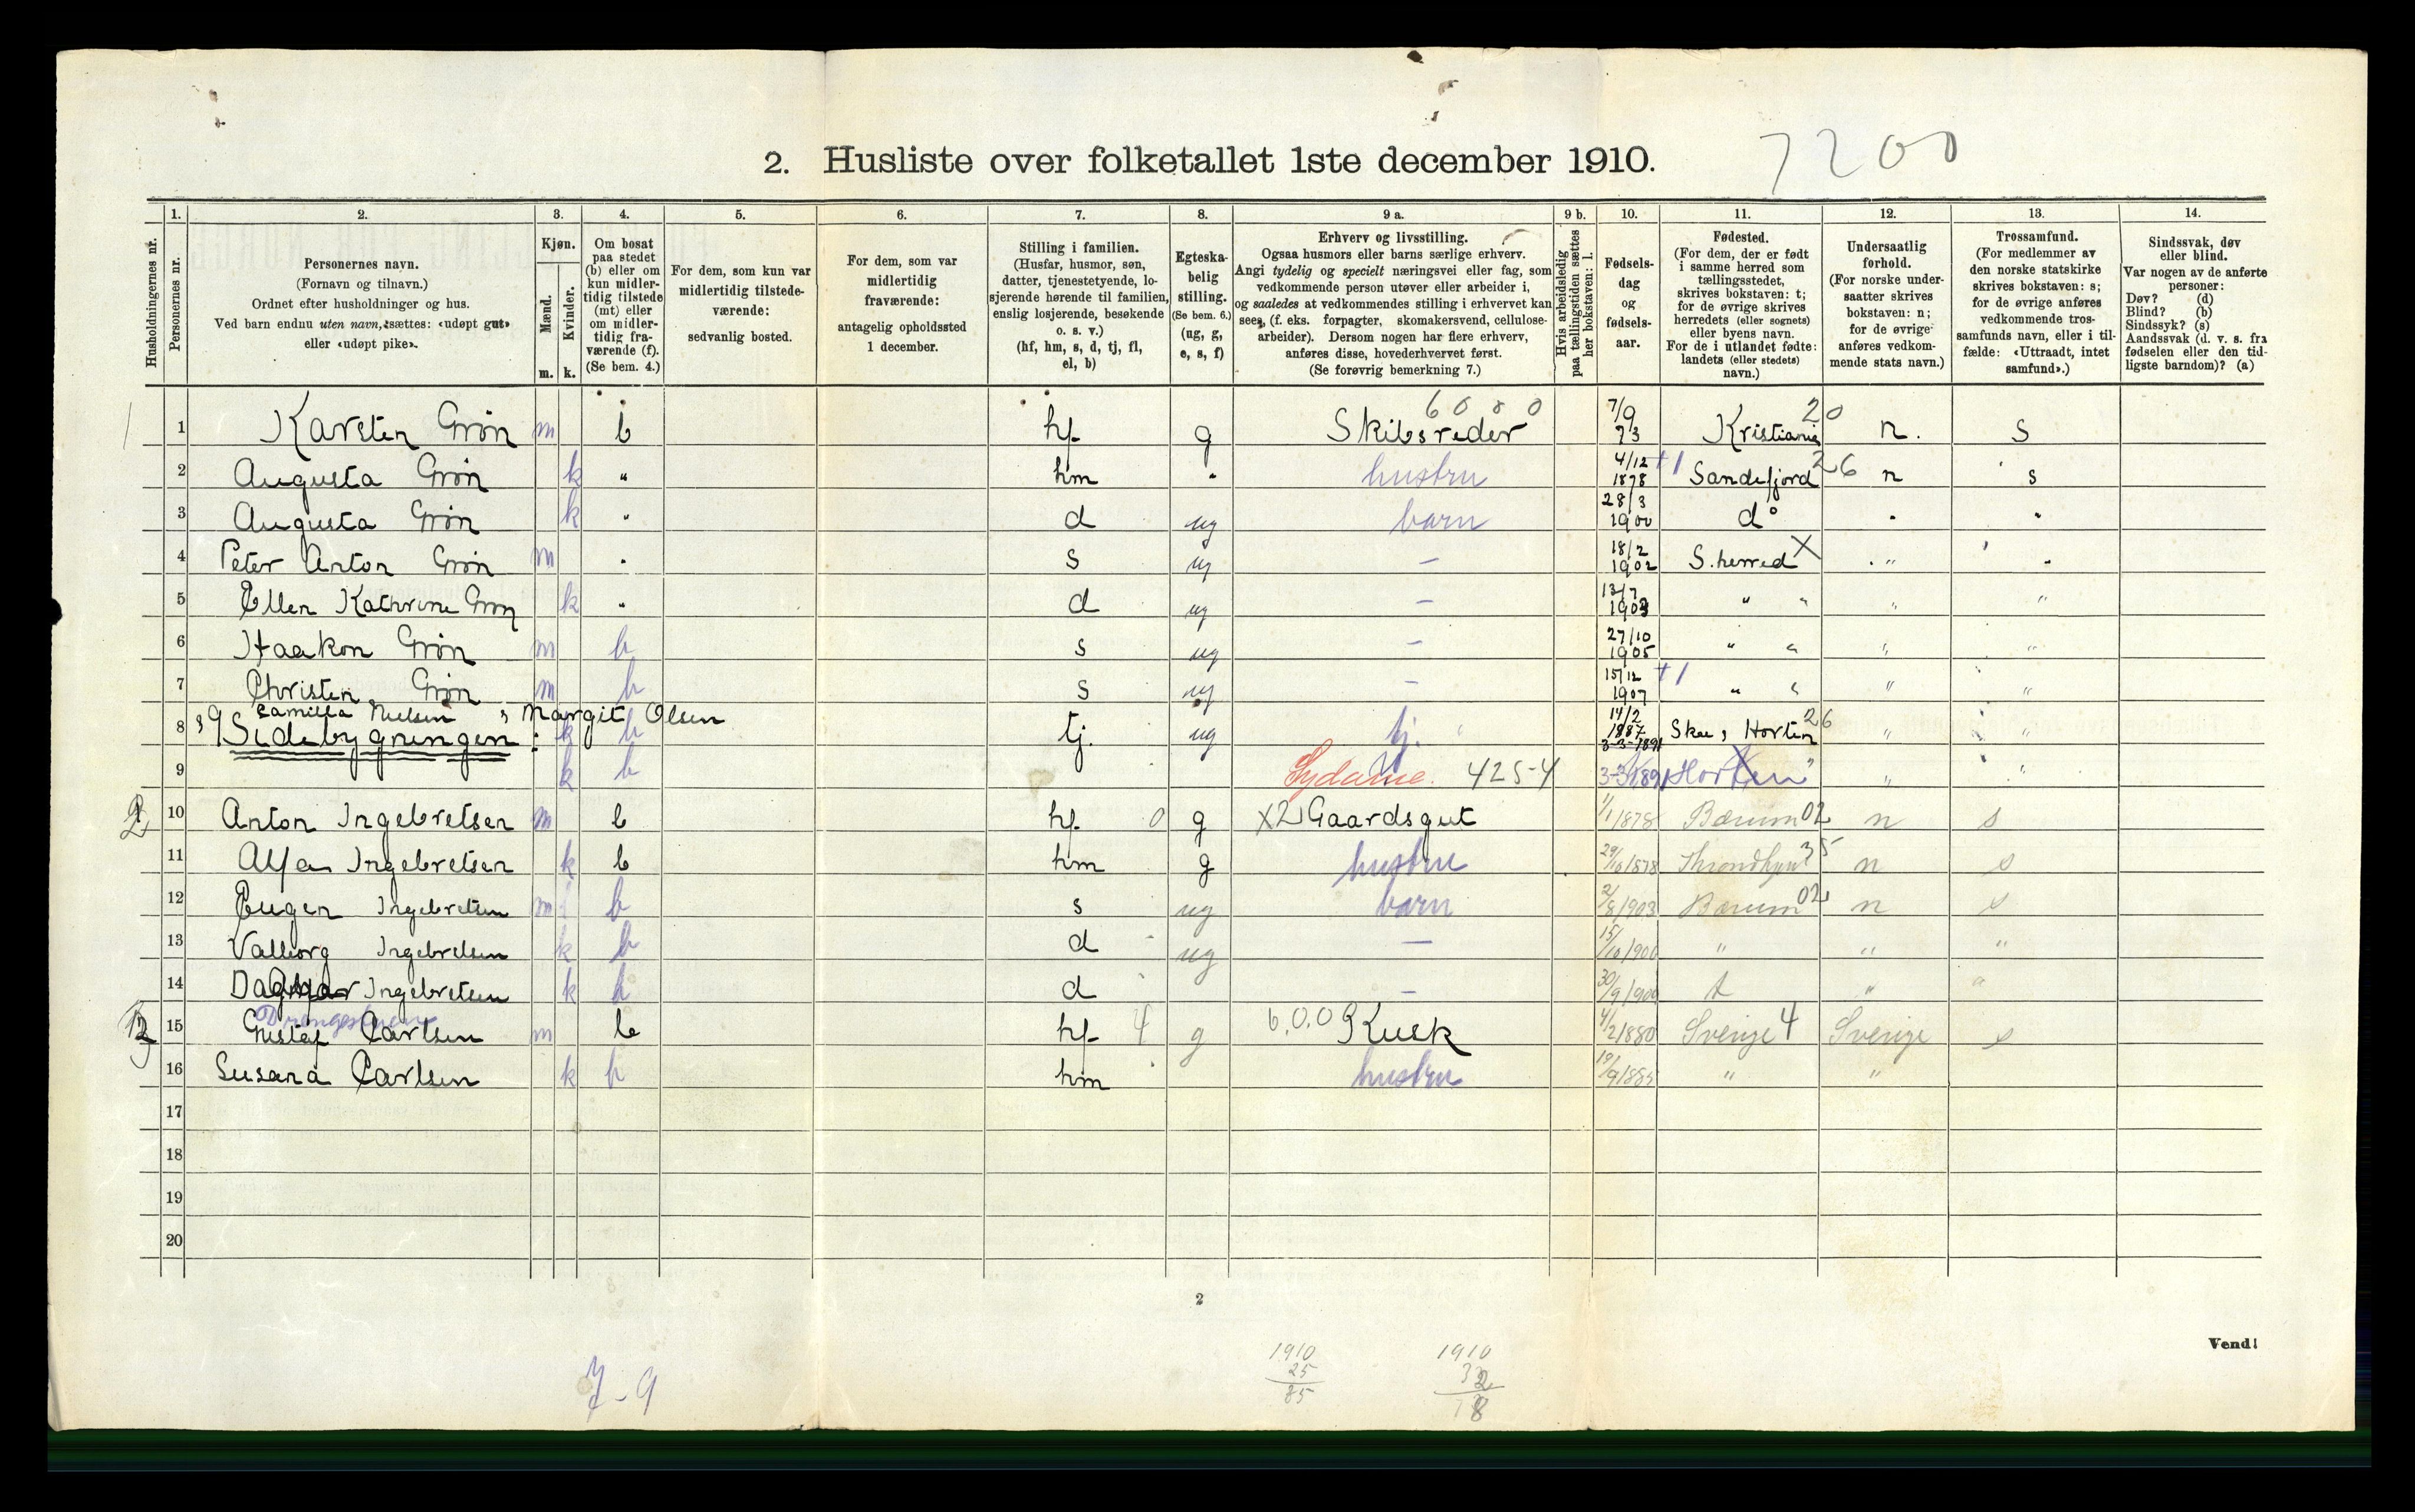 2. Husliste over folketallet 1ste december 1910. 7200
Husholdningernes nr.
1. Personernes nr.
2. Personernes navn.
(Fornavn og tilnavn.)
Ordnet efter husholdninger og hus.
Ved barn endnu uten navn, sættes: «udøpt gut»
eller «udøpt pike».
3. Kjøn.
Mænd. m.
Kvinder. k.
4. Om bosat
paa stedet
(b) eller om
kun midler-
tidig tilstede
(mt) eller
om midler-
tidig fra-
værende (f).
(Se bem. 4.)
5. For dem, som kun var
midlertidig tilstede-
værende:
sedvanlig bosted.
6. For dem, som var
midlertidig
fraværende:
antagelig opholdssted
1 december.
7. Stilling i familien.
(Husfar, husmor, søn,
datter, tjenestetyende, lo-
sjerende hørende til familien,
enslig losjerende, besøkende
o. s. v.)
(hf, hm, s, d, tj, fl,
el, b)
8. Egteska-
belig
stilling.
(Se bem. 6.)
(ug, g,
e, s, f)
9 a. Erhverv og livsstilling.
Ogsaa husmors eller barns særlige erhverv.
Angi tydelig og specielt næringsvei eller fag, som
vedkommende person utøver eller arbeider i,
og saaledes at vedkommendes stilling i erhvervet kan
sees, (f. eks. forpagter, skomakersvend, cellulose-
arbeider). Dersom nogen har flere erhverv,
anføres disse, hovederhvervet først.
(Se forøvrig bemerkning 7.)
9 b. Hvis arbeidsledig
paa tællingstiden sættes
her bokstaven: l.
10. Fødsels-
dag
og
fødsels-
aar.
11. Fødested.
(For dem, der er født
i samme herred som
tællingsstedet,
skrives bokstaven: t;
for de øvrige skrives
herredets (eller sognets)
eller byens navn.
For de i utlandet fødte:
landets (eller stedets)
navn.)
12. Undersaatlig
forhold.
(For norske under-
saatter skrives
bokstaven: n;
for de øvrige
anføres vedkom-
mende stats navn.)
13. Trossamfund.
(For medlemmer av
den norske statskirke
skrives bokstaven: s;
for de øvrige anføres
vedkommende tros-
samfunds navn, eller i til-
fælde: «Uttraadt, intet
samfund».)
14. Sindssvak, døv
eller blind.
Var nogen av de anførte
personer:
Døv? (d)
Blind? (b)
Sindssyk? (s)
Aandssvak (d. v. s. fra
fødselen eller den tid-
ligste barndom)? (a)
1 1 Karsten Grøn m b hf g Skibsreder 6080 7/9 73 Kristiania 20 n. s
2 Augusta Grøn k " hm " hustru 4/12 1878 +1 Sandefjord 26 n s
3 Augusta Grøn k " d ug barn 28/3 1900 do " "
4 Peter Anton Grøn m " s ug — 18/2 1902 S. herred X " "
5 Ellen Kathrine Grøn k " d ug — 13/7 1903 " " " "
6 Haakon Grøn m b s ug — 27/10 1905 " " " "
7 Christen Grøn m b s ug — 15/12 1907 +1 " " " "
Camilla Nielsen, Margit Olsen
8 9 Sidebygningen: k b tj. ug tj. 14/2 1887 3-3-1891 Skee, Horten 26 " "
9 k b 425-4 3-3/1891 Horten " "
2 10 Anton Ingebretsen m b hf 0 g x2 Gaardsgut 1/1 1878 Bærum 02 n s
11 Alfa Ingebretsen k b hm g hustru 29/10 1878 Throndhjem 35 n s
12 Eugen Ingebretsen m b s ug barn 2/8 1903 Bærum 02 n s
13 Valborg Ingebretsen k b d ug — 15/10 1900 " " "
14 Dagmar Ingebretsen k b d — 30/9 1909 t " "
Drengestuen
3 15 Gustaf Carlsen m b hf 4 g 6.0.09 Kusk 4/2 1880 Sverige 4 Sverige s
16 Susana Carlsen k b hm hustru 10/9 1885 " "
17
18
19
20
2
Vend!
7-9
1910
25
85
1910
32
78